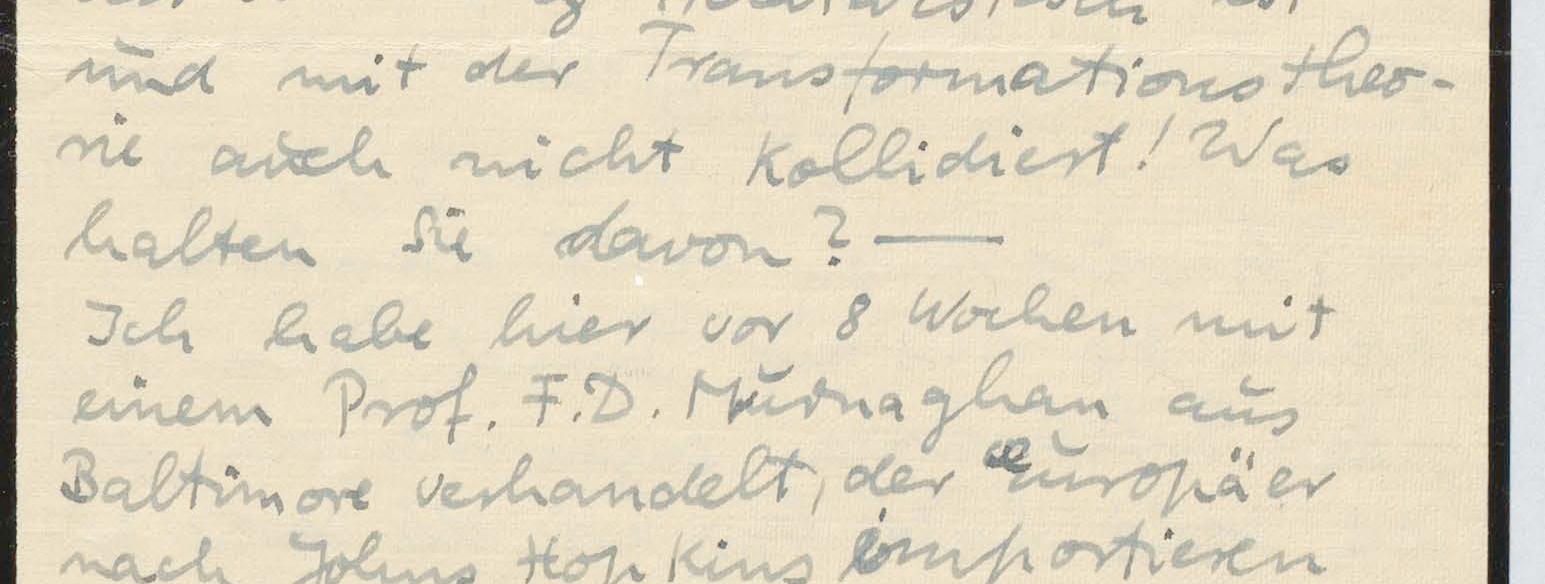 und mit der Transformationstheo-
rie auch nicht kollidiert! Was
halten Sie davon? —
Ich habe hier vor 8 Wochen mit
einem Prof. F.D. Murnaghan aus
Baltimore verhandelt, der Europäer
nach Johns Hopkins importieren